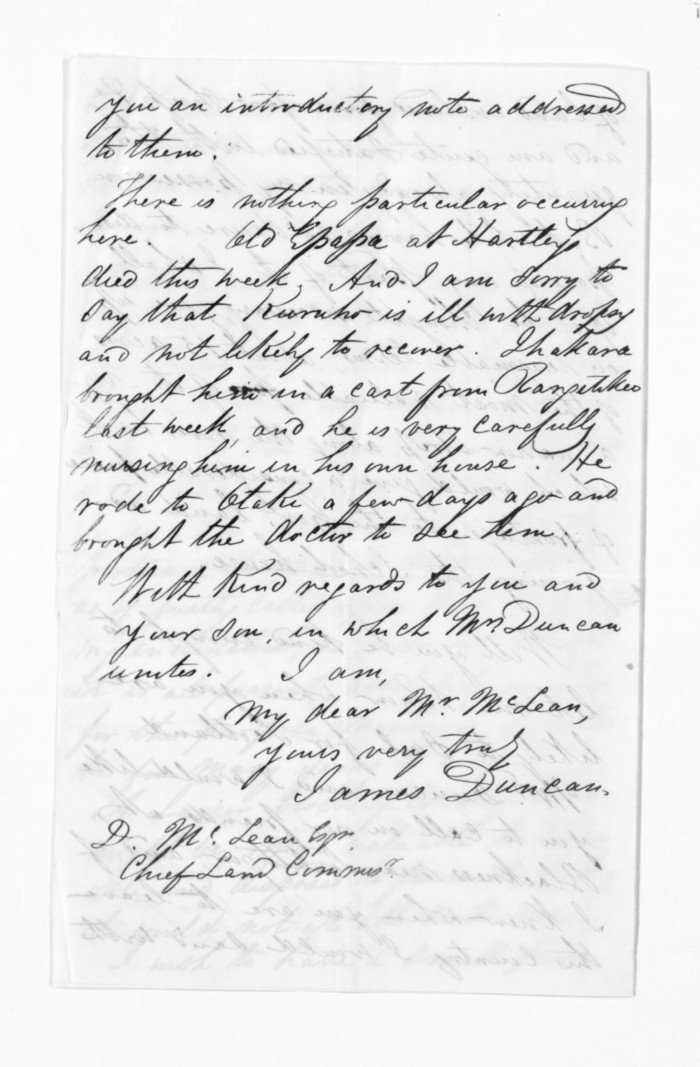 you an introductory note addressed
to them.
There is nothing particular occurring
here. Old Epapa at Hartleys
died this week. And I am sorry to
say that Kuruho is ill with dropsy
and not likely to recover. Ihakara
brought him in a cart from Rangitikei
last week, and he is very carefully
nursing him in his own house. He
rode to Otaki a few days ago and
brought the doctor to see him.
With kind regards to you and
your son, in which Mrs. Duncan
unites. I am,
My dear Mr. McLean,
yours very truly
James Duncan.
D. McLean Esqr.
Chief Land Commisr.